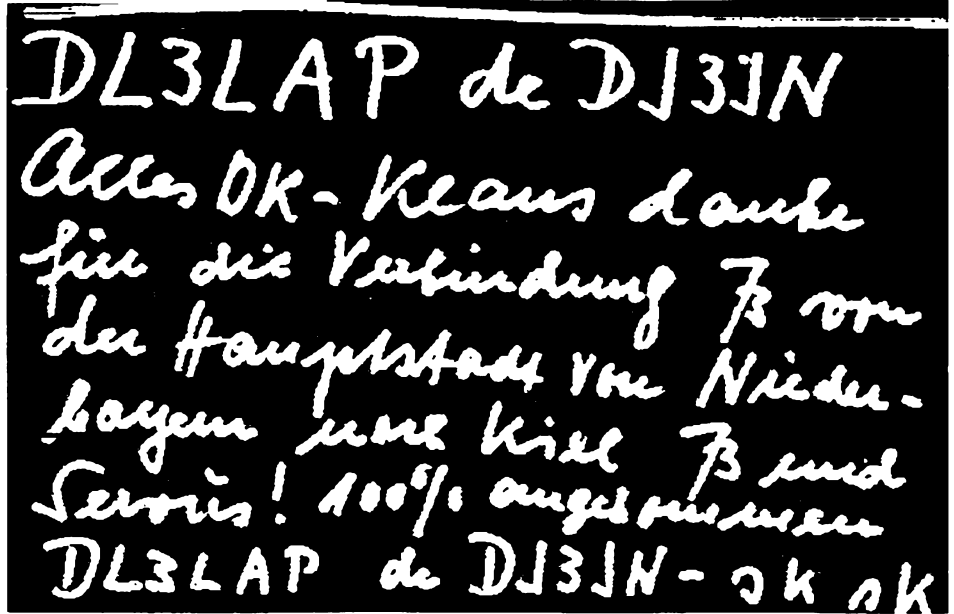 DL3LAP de DJ3JN
Alles OK - Klaus danke
für die Verbindung 73 von
der Hauptstadt von Nieder-
bayern nach Kiel 73 und
Servus! 100% angekommen
DL3LAP de DJ3JN - sk sk